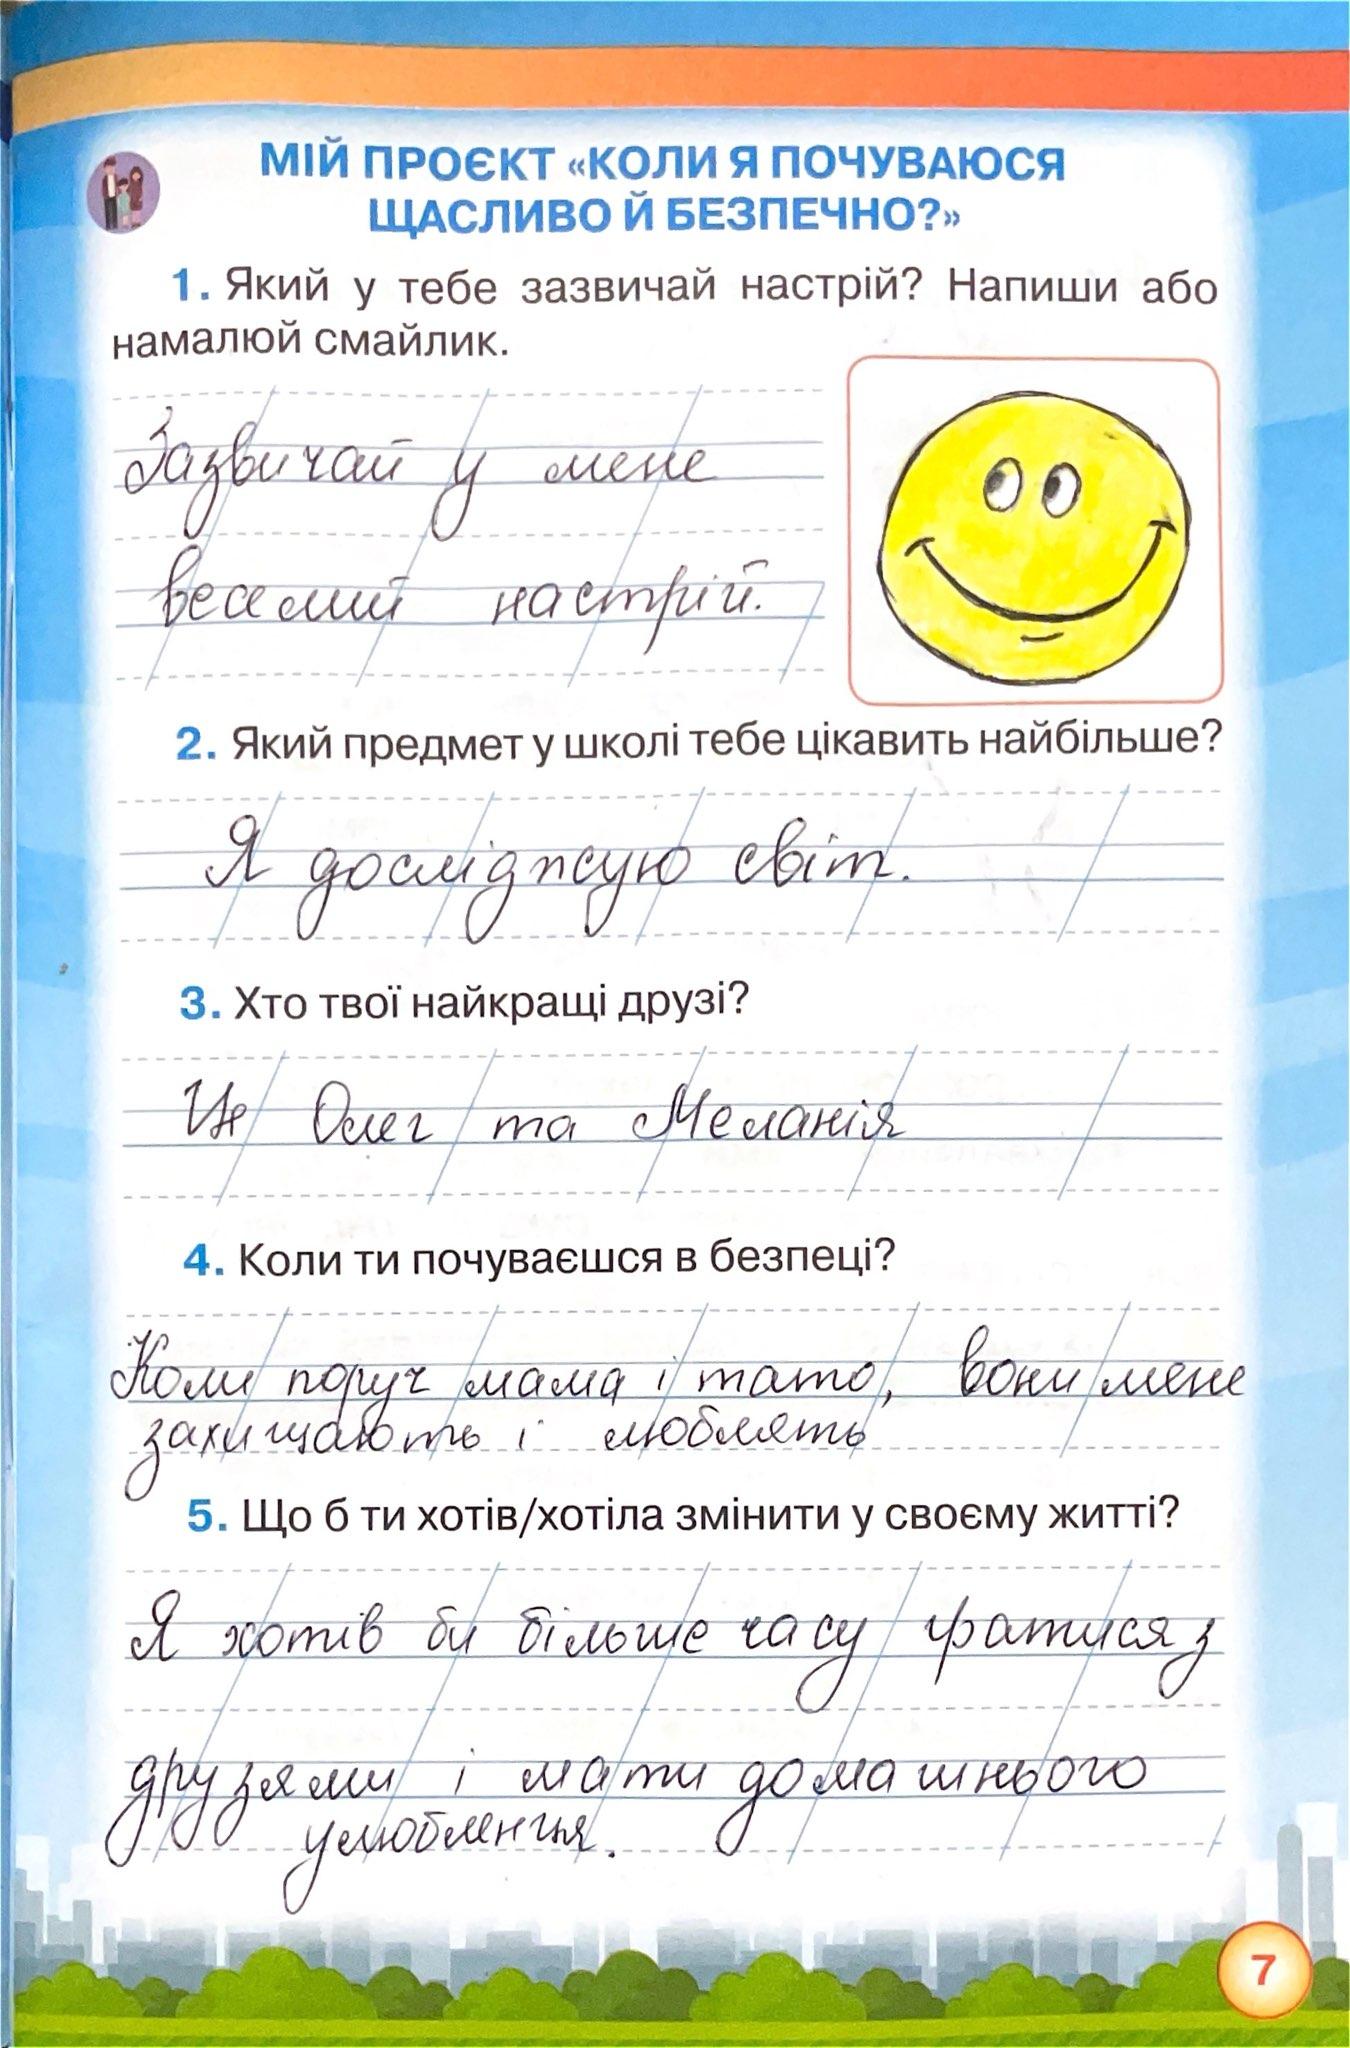 МІЙ ПРОЄКТ «КОЛИ Я ПОЧУВАЮСЯ
ЩАСЛИВО Й БЕЗПЕЧНО?»
1. Який у тебе зазвичай настрій? Напиши або
намалюй смайлик.
Зазвичай у мене
веселий настрій.
2. Який предмет у школі тебе цікавить найбільше?
Я досліджую світ.
3. Хто твої найкращі друзі?
Це Олег та Меланія
4. Коли ти почуваєшся в безпеці?
Коли поруч мама і тато, вони мене
захищають і люблять
5. Що б ти хотів/хотіла змінити у своєму житті?
Я хотів би більше часу гратися з
друзями і мати домашнього
улюбленця.
7